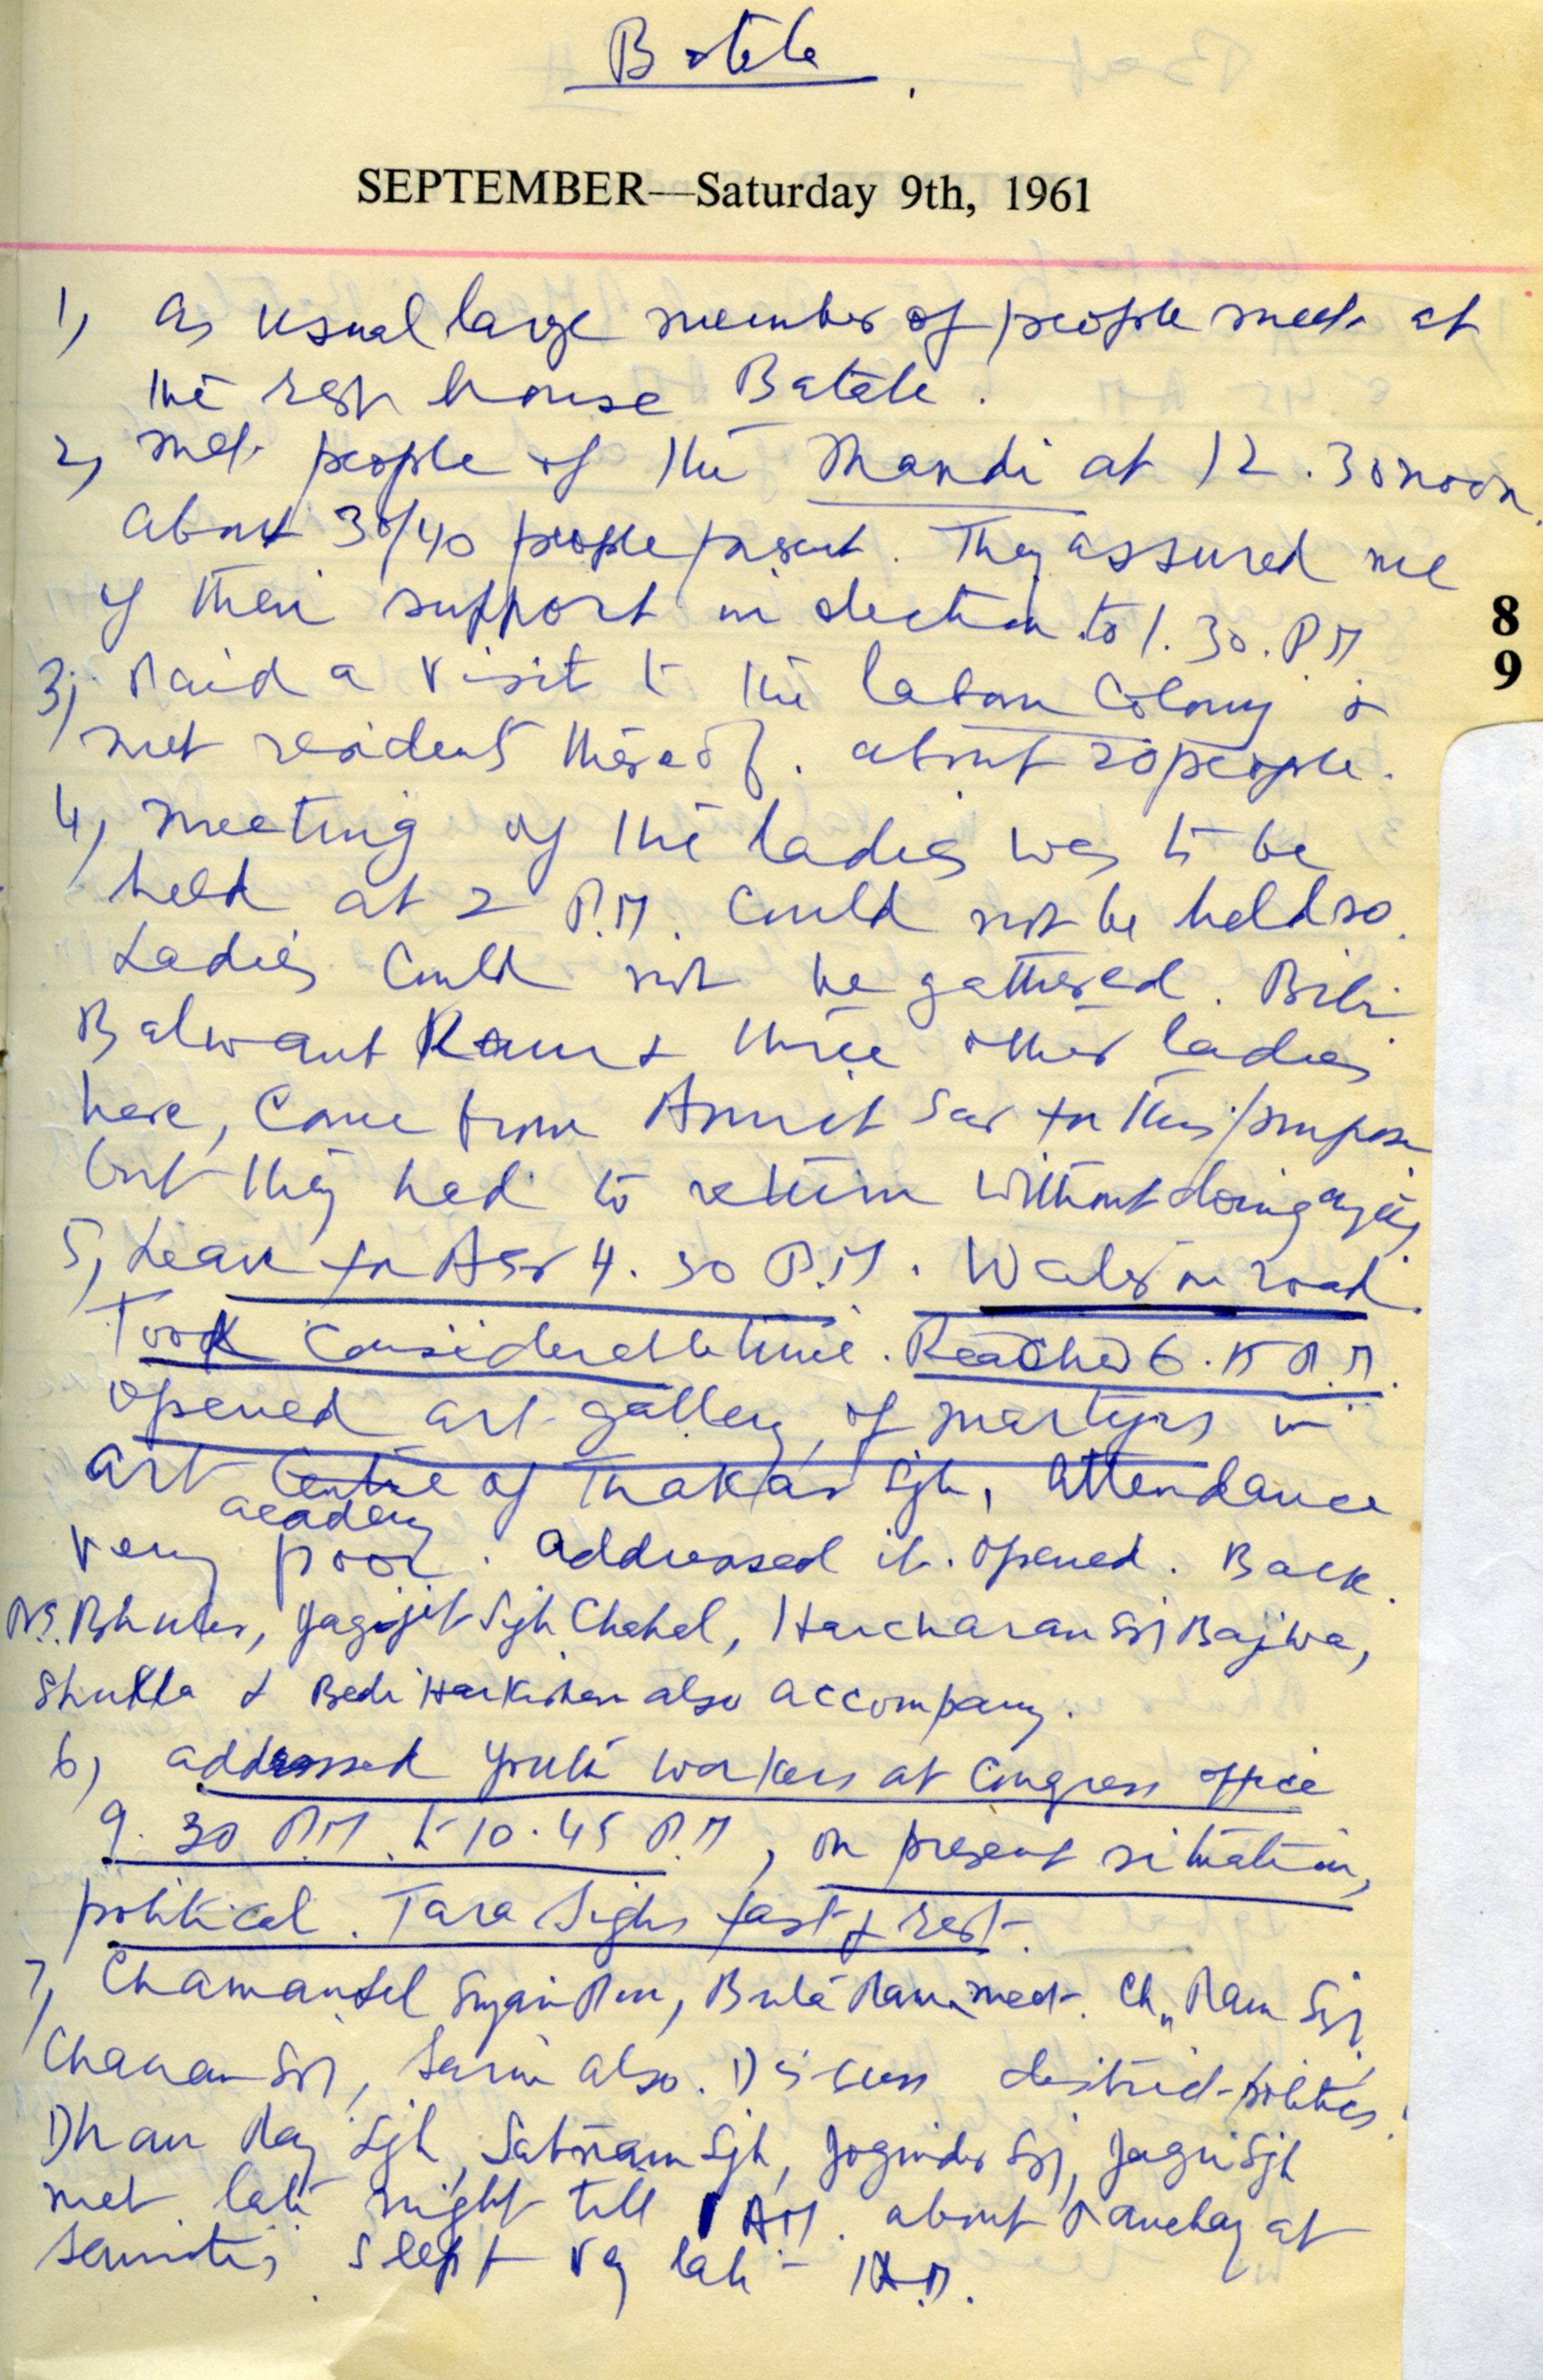 Batala
SEPTEMBER—Saturday 9th, 1961
1) As usual large number of people meet at
the rest house Batala.
2) Met people of the Mandi at 12.30 noon.
About 30/40 people present. They assured me
of their support in election to 1.30. P.M
3) Paid a visit to the labour Colony &
met residents thereof. about 20 people.
4) Meeting of the ladies was to be
held at 2 P.M. Could not be held so.
Ladies Could not be gathered. Bibi
Balwant Kaur & three other ladies
here, Come from Amrit Sar for this purpose
but they had to return without doing anything
5) Leave for Asr 4.30 P.M. Water on road.
Took considerable time. Reached 6.15 P.M.
opened art gallery of martyrs in
Art Centre of Thakar Sgh, Attendance
academy
very poor. addressed it. opened. Back.
Jagjit Sgh Chahal, Harcharan Sgh Bajwa,
Shukla & Bedi Harkishan also accompany.
6) addressed youth workers at Congress office
9.30 P.M. to 10.45 P.M, on present situation,
political. Tara Sighs fast & rest.
7) Chamanlal Ram, met. Ch. Ram Sgh
Chanan Sgh, also. Discuss district politics.
Dhan Raj Sgh, Satnam Sgh, Joginder Sgh, Jagir Sgh
met late night till 1 AM. about Panchayat
Samitis. Slept vy late - 1 A.M.
8
9